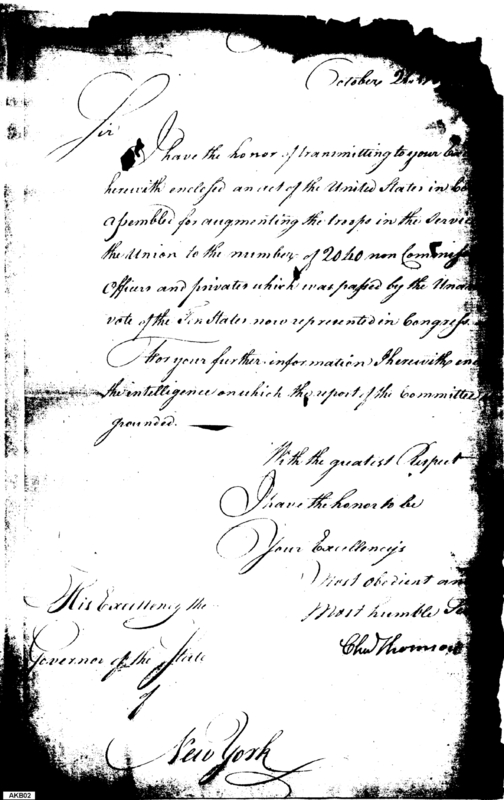 October 21
Sir
I have the honor of transmitting to your
herewith enclosed an act of the United States in Co
assembled for augmenting the troops in the Servic
the Union to the number of 2040 non Commiss
Officers and privates which was passed by the Unan
vote of the Ten States now represented in Congress.
For your further information I herewith enc
the intelligence on which the report of the Committee
grounded.
With the greatest Respect
I have the honor to be
Your Excellency's
Most obedient an
Most humble Se
Chas Thomson
His Excellency the
Governor of the State
of
New York
AKB02